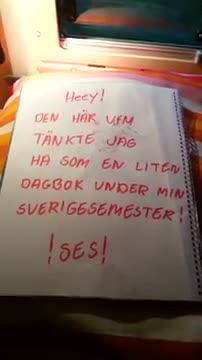 Heey!
DEN HÄR UFM
TÄNKTE JAG
HA SOM EN LITEN
DAGBOK UNDER MIN
SVERIGESEMESTER!
!SES!